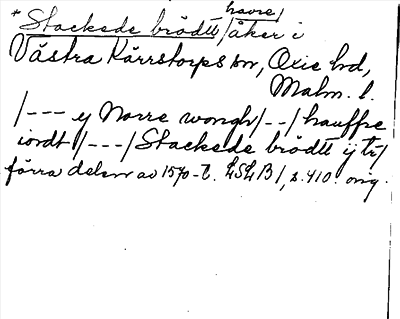 havre/
* Stackede brödtt /åker i
Västra Kärrstorps sn, Oxie hd,
Malm. l.
/--- ij Norre wongh/--/hauffre
iordt /---/Stackede brödtt ij tr/
förra delen av 1570-t. LSLB 1, s. 410. orig.